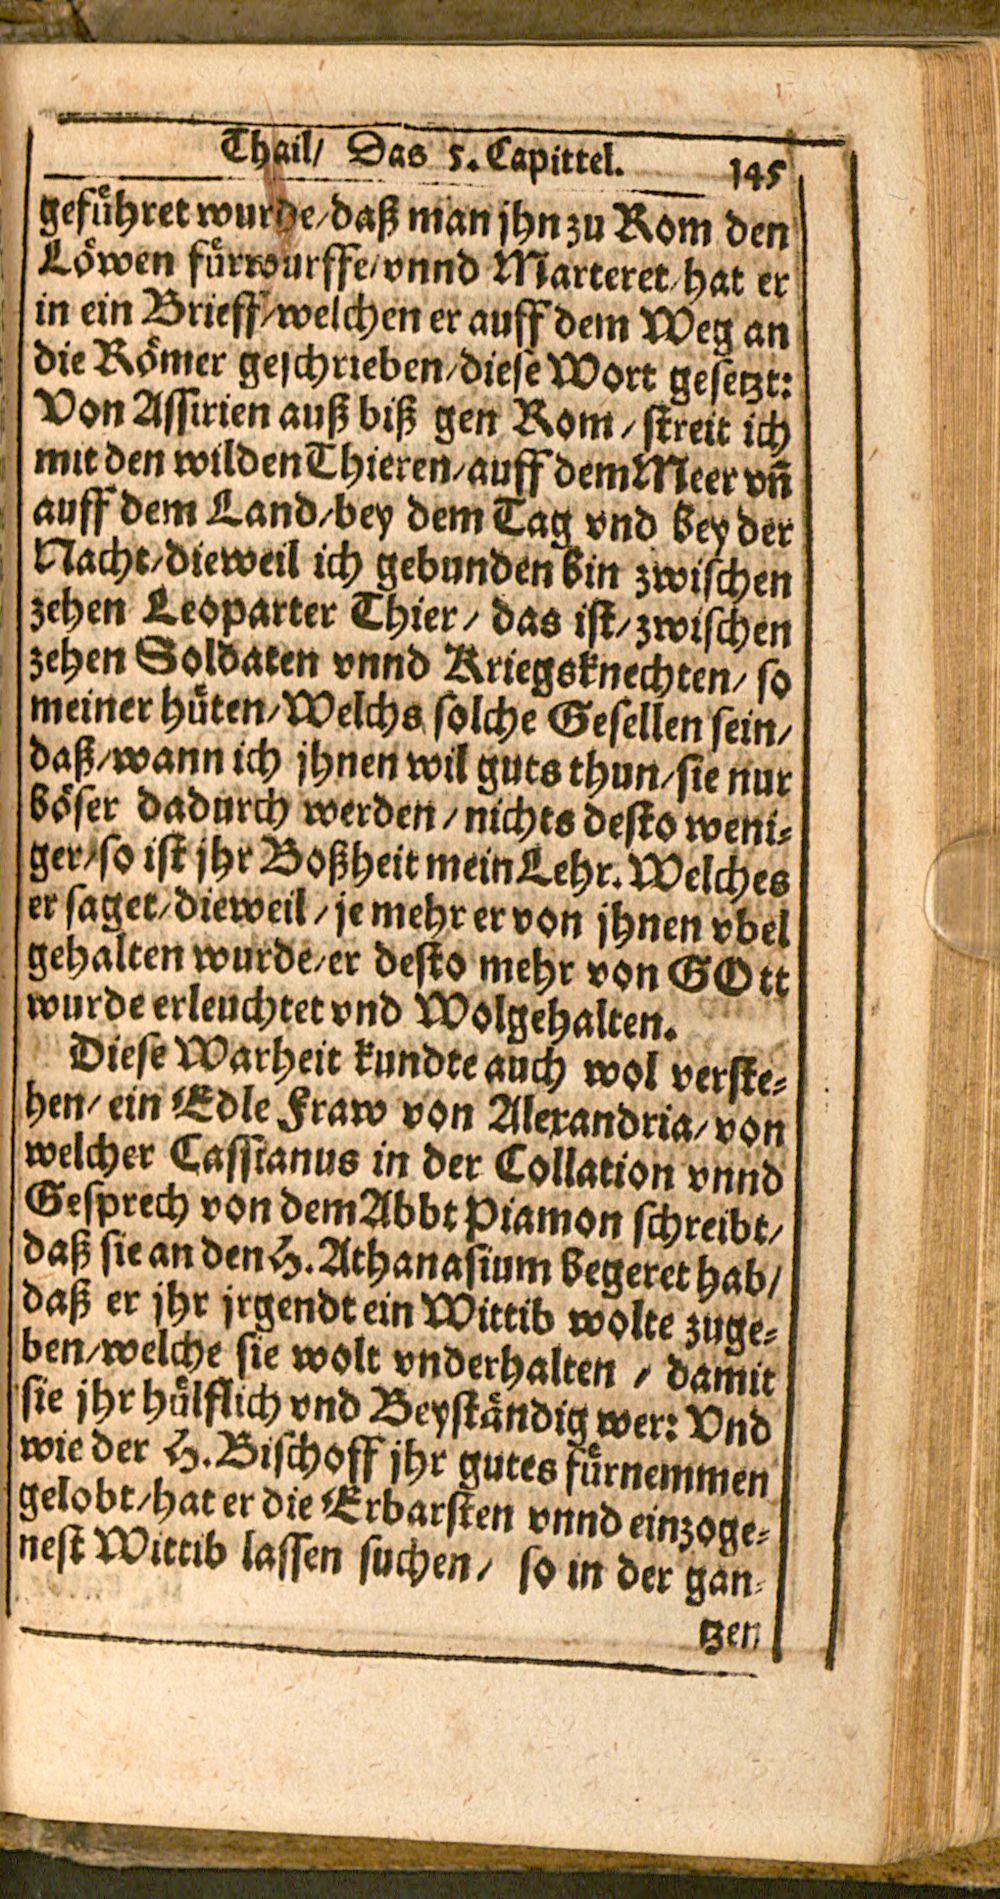 Thail/ Das 5. Capittel. 145
gefuͤhret wurde/daß man jhn zu Rom den
Loͤwen fuͤrwurffe/vnnd Marteret/hat er
in ein Brieff/welchen er auff dem Weg an
die Roͤmer geschrieben/diese Wort gesetzt:
Von Assirien auß biß gen Rom/streit ich
mit den wilden Thieren/auff dem Meer vñ
auff dem Land/bey dem Tag vnd bey der
Nacht/dieweil ich gebunden bin zwischen
zehen Leoparter Thier/ das ist/zwischen
zehen Soldaten vnnd Kriegsknechten/ so
meiner huͤten/Welchs solche Gesellen sein/
daß/wann ich jhnen wil guts thun/sie nur
boͤser dadurch werden/nichts desto weni-
ger/so ist jhr Boßheit mein Lehr. Welches
er saget/dieweil/je mehr er von jhnen vbel
gehalten wurde/er desto mehr von GOtt
wurde erleuchtet vnd Wolgehalten.
Diese Warheit kundte auch wol verste-
hen/ ein Edle Fraw von Alexandria/von
welcher Cassianus in der Collation vnnd
Gesprech von dem Abbt Piamon schreibt/
daß sie an den H. Athanasium begeret hab/
daß er jhr jrgendt ein Wittib wolte zuge-
ben/welche sie wolt vnderhalten/ damit
sie jhr huͤlflich vnd Beystaͤndig wer: Vnd
wie der H. Bischoff jhr gutes fuͤrnemmen
gelobt/hat er die Erbarsten vnnd einzoge-
nest Wittib lassen suchen/ so in der gan-
tzen